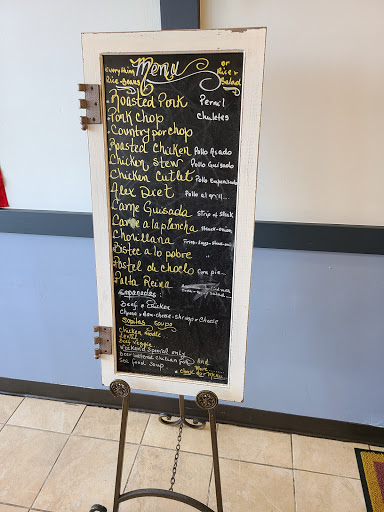 Everything Menu or
Rice-Beans Rice & Salad
Roasted Pork Pernil
Pork Chop Chuletas
Country porchop
Roasted Chicken Pollo Asado
Chicken Stew Pollo Guisado
Chicken Cutlet Pollo Empanizado
Alex Diet Pollo al grill...
Carne Guisada Strip of Steak
Carne a la plancha Steak-onion
Chorillana
Bistec a lo pobre
Pastel de choclo Corn pie...
Palta Reina
Empanadas:
Beef & Chicken
Cheese & Ham-cheese-shrimp & cheese
Sopitas soups
Chicken noodle
Lentil
Beef Veggie
Weekend Special only
Sea food soup
and
more